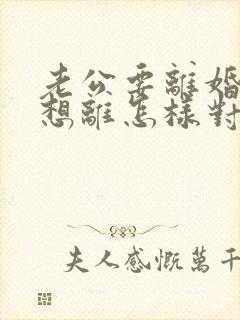 老公要離婚
想離怎樣對
夫人感慨萬千